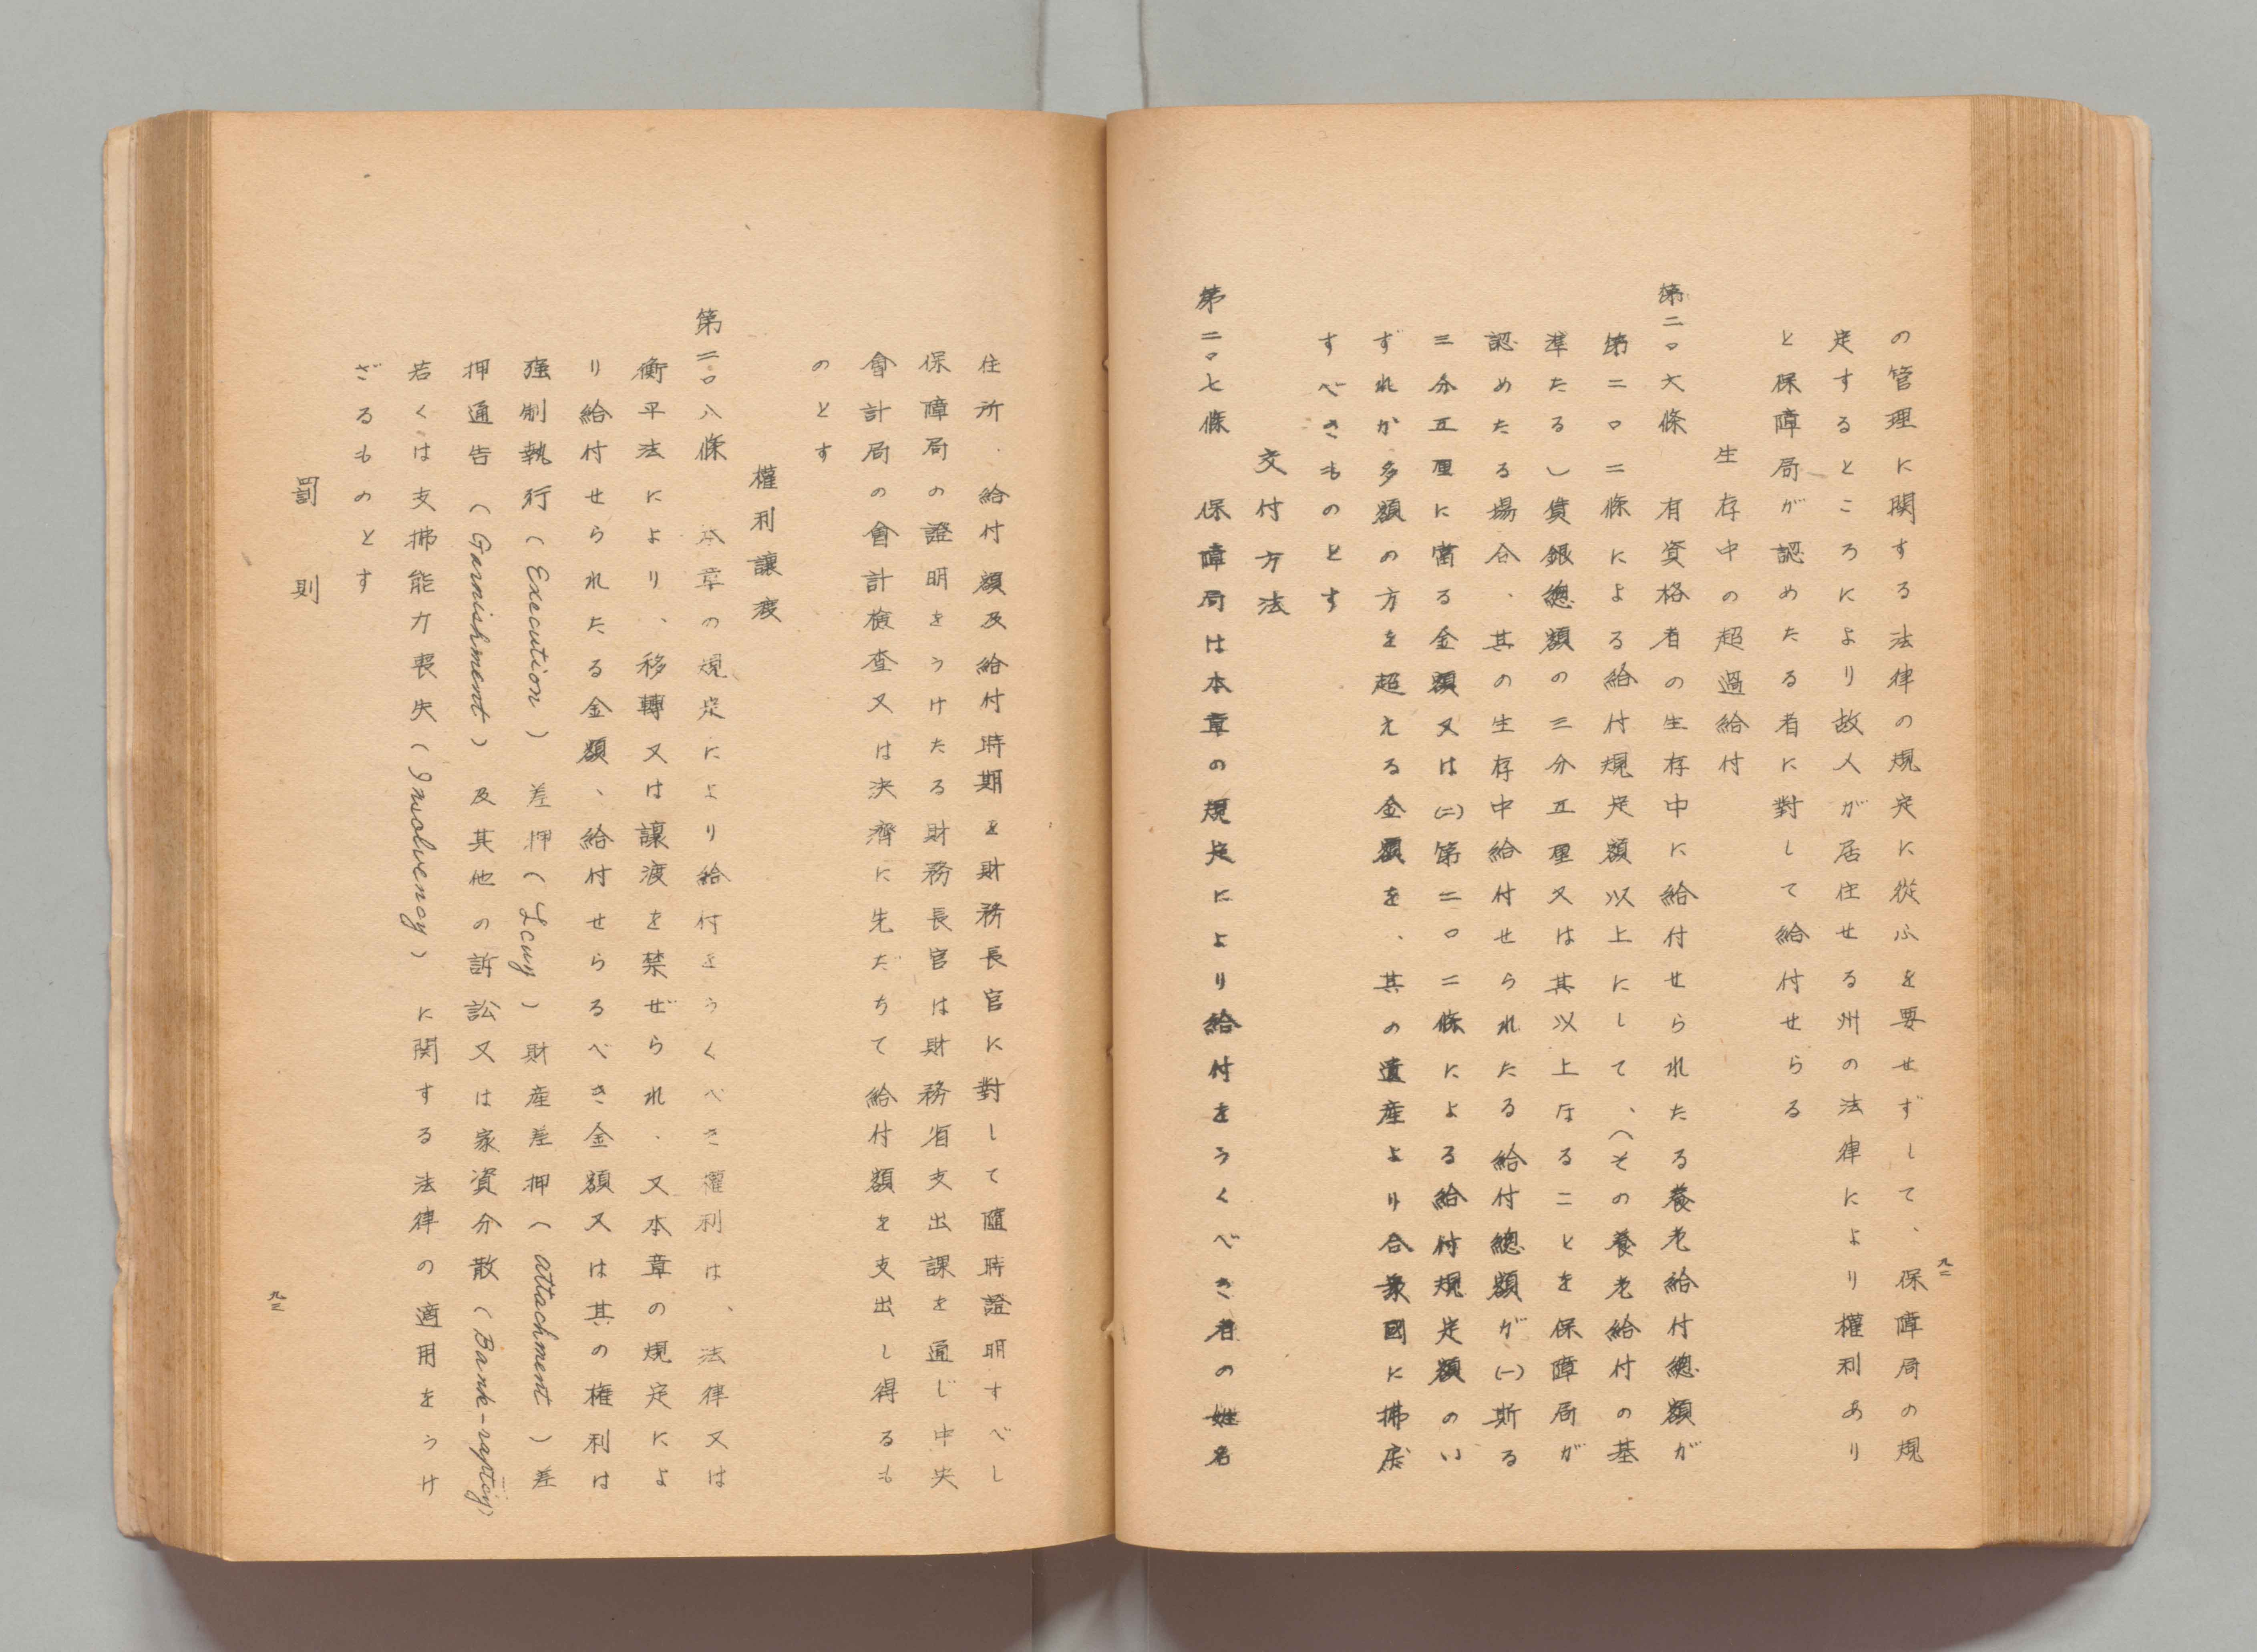 の管理に関する法律の規定に從ふを要せずして、保障局の規
定するところにより故人が居住せる州の法律により權利あり
と保障局が認めたる者に對して給付せらる
生存中の超過給付
第二〇六條　有資格者の生存中に給付せられたる養老給付總額が
第二〇二條による給付規定額以上にして、（その養老給付の基
準たる）賃銀總額の三分五厘又は其以上なることを保障局が
認めたる場合、其の生存中給付せられたる給付總額が(一)斯る
三分五厘に當る金額又は(二)第二〇二條による給付規定額のい
ずれか多額の方を超える金額を、其の遺産より合衆國に拂戻
すべきものとす
交付方法
第二〇七條　保障局は本章の規定により給付をうくべき者の姓名
九二
住所．給付額及給付時期を財務長官に對して隨時證明すべし
保障局の證明をうけたる財務長官は財務省支出課を通じ中央
會計局の會計檢査又は決濟に先だちて給付額を支出し得るも
のとす
權利讓渡
第二〇八條　本章の規定により給付をうくべき權利は、法律又は
衡平法により、移轉又は讓渡を禁ぜられ．又本章の規定によ
り給付せられたる金額、給付せらるべき金額又は其の権利は
强制執行（Execution）差押（Levy）財産差押（attachment）差
押通告（Garnishment）及其他の訴訟又は家資分散（Bank-raptcy）
若くは支拂能力喪失（Insolvency）に関する法律の適用をうけ
ざるものとす
罰則
九三